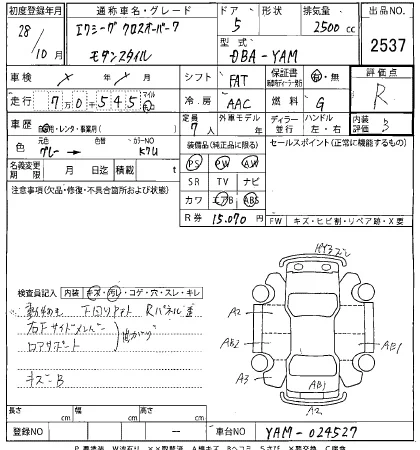 初度登録年月 通称車名・グレード ドア 形状 排気量 出品NO.
28/10月 エクシーガ クロスオーバー7 モダンスタイル 5 2500cc
型式 DBA-YAM 2537
車検 シフト FAT 保証書 有・無 評価点
走行 7万0千545 マイル 冷房 AAC 燃料 G R
車歴 自家用・レンタ・事業用( ) 定員 7人 外車モデル 年 ディーラー 並行 ハンドル 左・右 内装評価 3
色 元色 グレー → 色替 カラーNO K7U 装備品(純正品に限る) セールスポイント(正常に機能するもの)
名義変更期限 月 日迄 積載 t PS PW AW
注意事項(欠品・修復・不具合箇所および状態) SR TV ナビ
カワ エアB ABS
R券 15,070円 FW キズ・ヒビ割・リペア跡・X要
検査員記入 内装 キズ・汚レ・コゲ・穴・スレ・キレ
右Fサイドメンバー
コアサポート
キズ-B
A2
AB2
A3
AB1
A1
AB3
A2
長さ cm 幅 cm 高さ cm
登録NO ー ー 車台NO YAM-024527